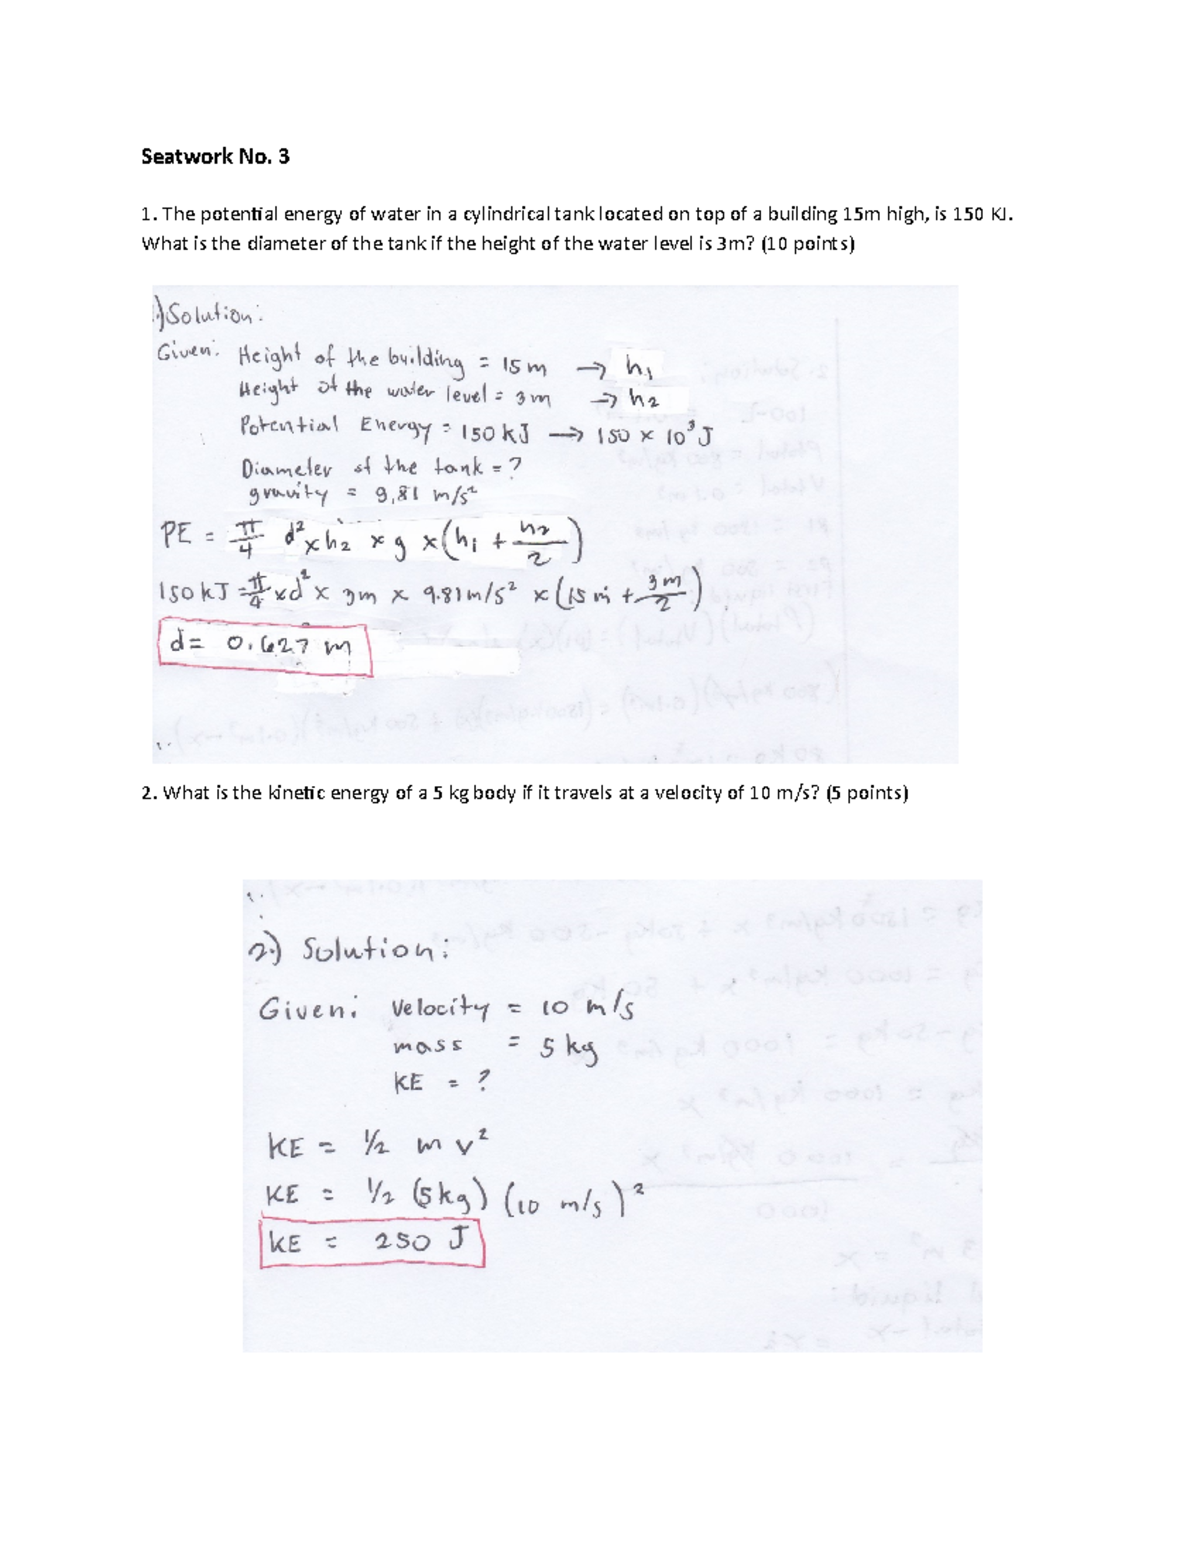 Seatwork No. 3
1. The potential energy of water in a cylindrical tank located on top of a building 15m high, is 150 KJ.
What is the diameter of the tank if the height of the water level is 3m? (10 points)
1.) Solution:
Given: Height of the building = 15 m → h1
Height of the water level = 3 m → h2
Potential Energy = 150 kJ → 150 x 10³ J
Diameter of the tank = ?
gravity = 9.81 m/s²
PE = π/4 d² x h2 x g x (h1 + h2/2)
150 kJ = π/4 x d² x 3m x 9.81 m/s² x (15 m + 3m/2)
d = 0.627 m
2. What is the kinetic energy of a 5 kg body if it travels at a velocity of 10 m/s? (5 points)
2.) Solution:
Given: Velocity = 10 m/s
mass = 5 kg
KE = ?
KE = 1/2 m v²
KE = 1/2 (5kg) (10 m/s)²
KE = 250 J